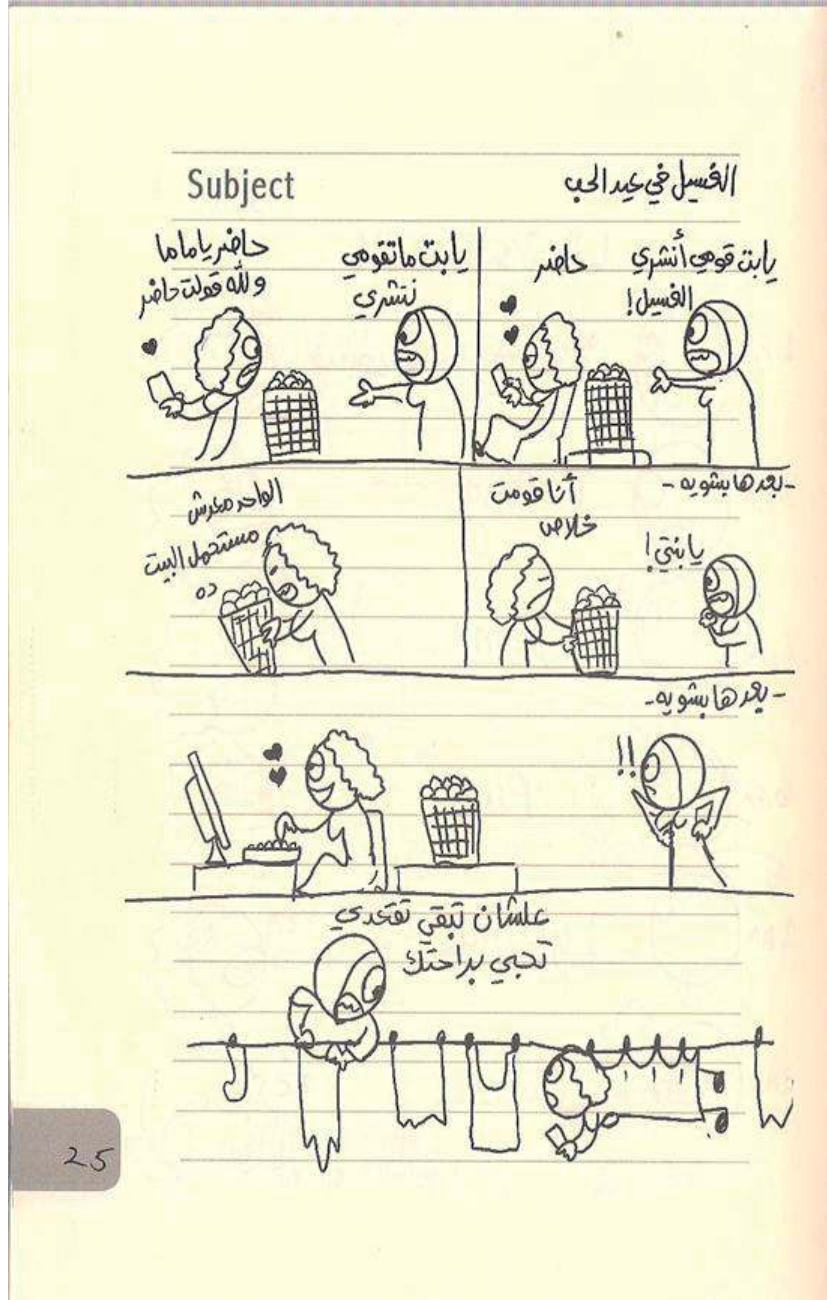 Subject
الغسيل في عيد الحب
يابت قومي أنشري
الغسيل!
حاضر
يابت ماتقومي
تنشري
حاضر ياماما
ولله قولت حاضر
- بعدها بشويه -
يا بنتي!
أنا قومت
خلاص
الواحد معدش
مستحمل البيت
ده
- بعدها بشويه -
!!
علشان تبقي تقعدي
تحبي براحتك
25